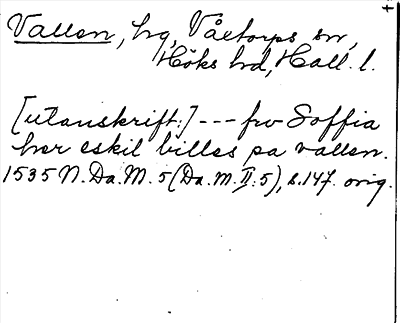 Vallen, hg, Våxtorps sn,
Höks hd, Hall. l.
[utanskrift:] --- frv Soffia
her eskil billes pa vallen.
1535 N. Da. M. 5 (Da. M. II:5), s. 147. orig.